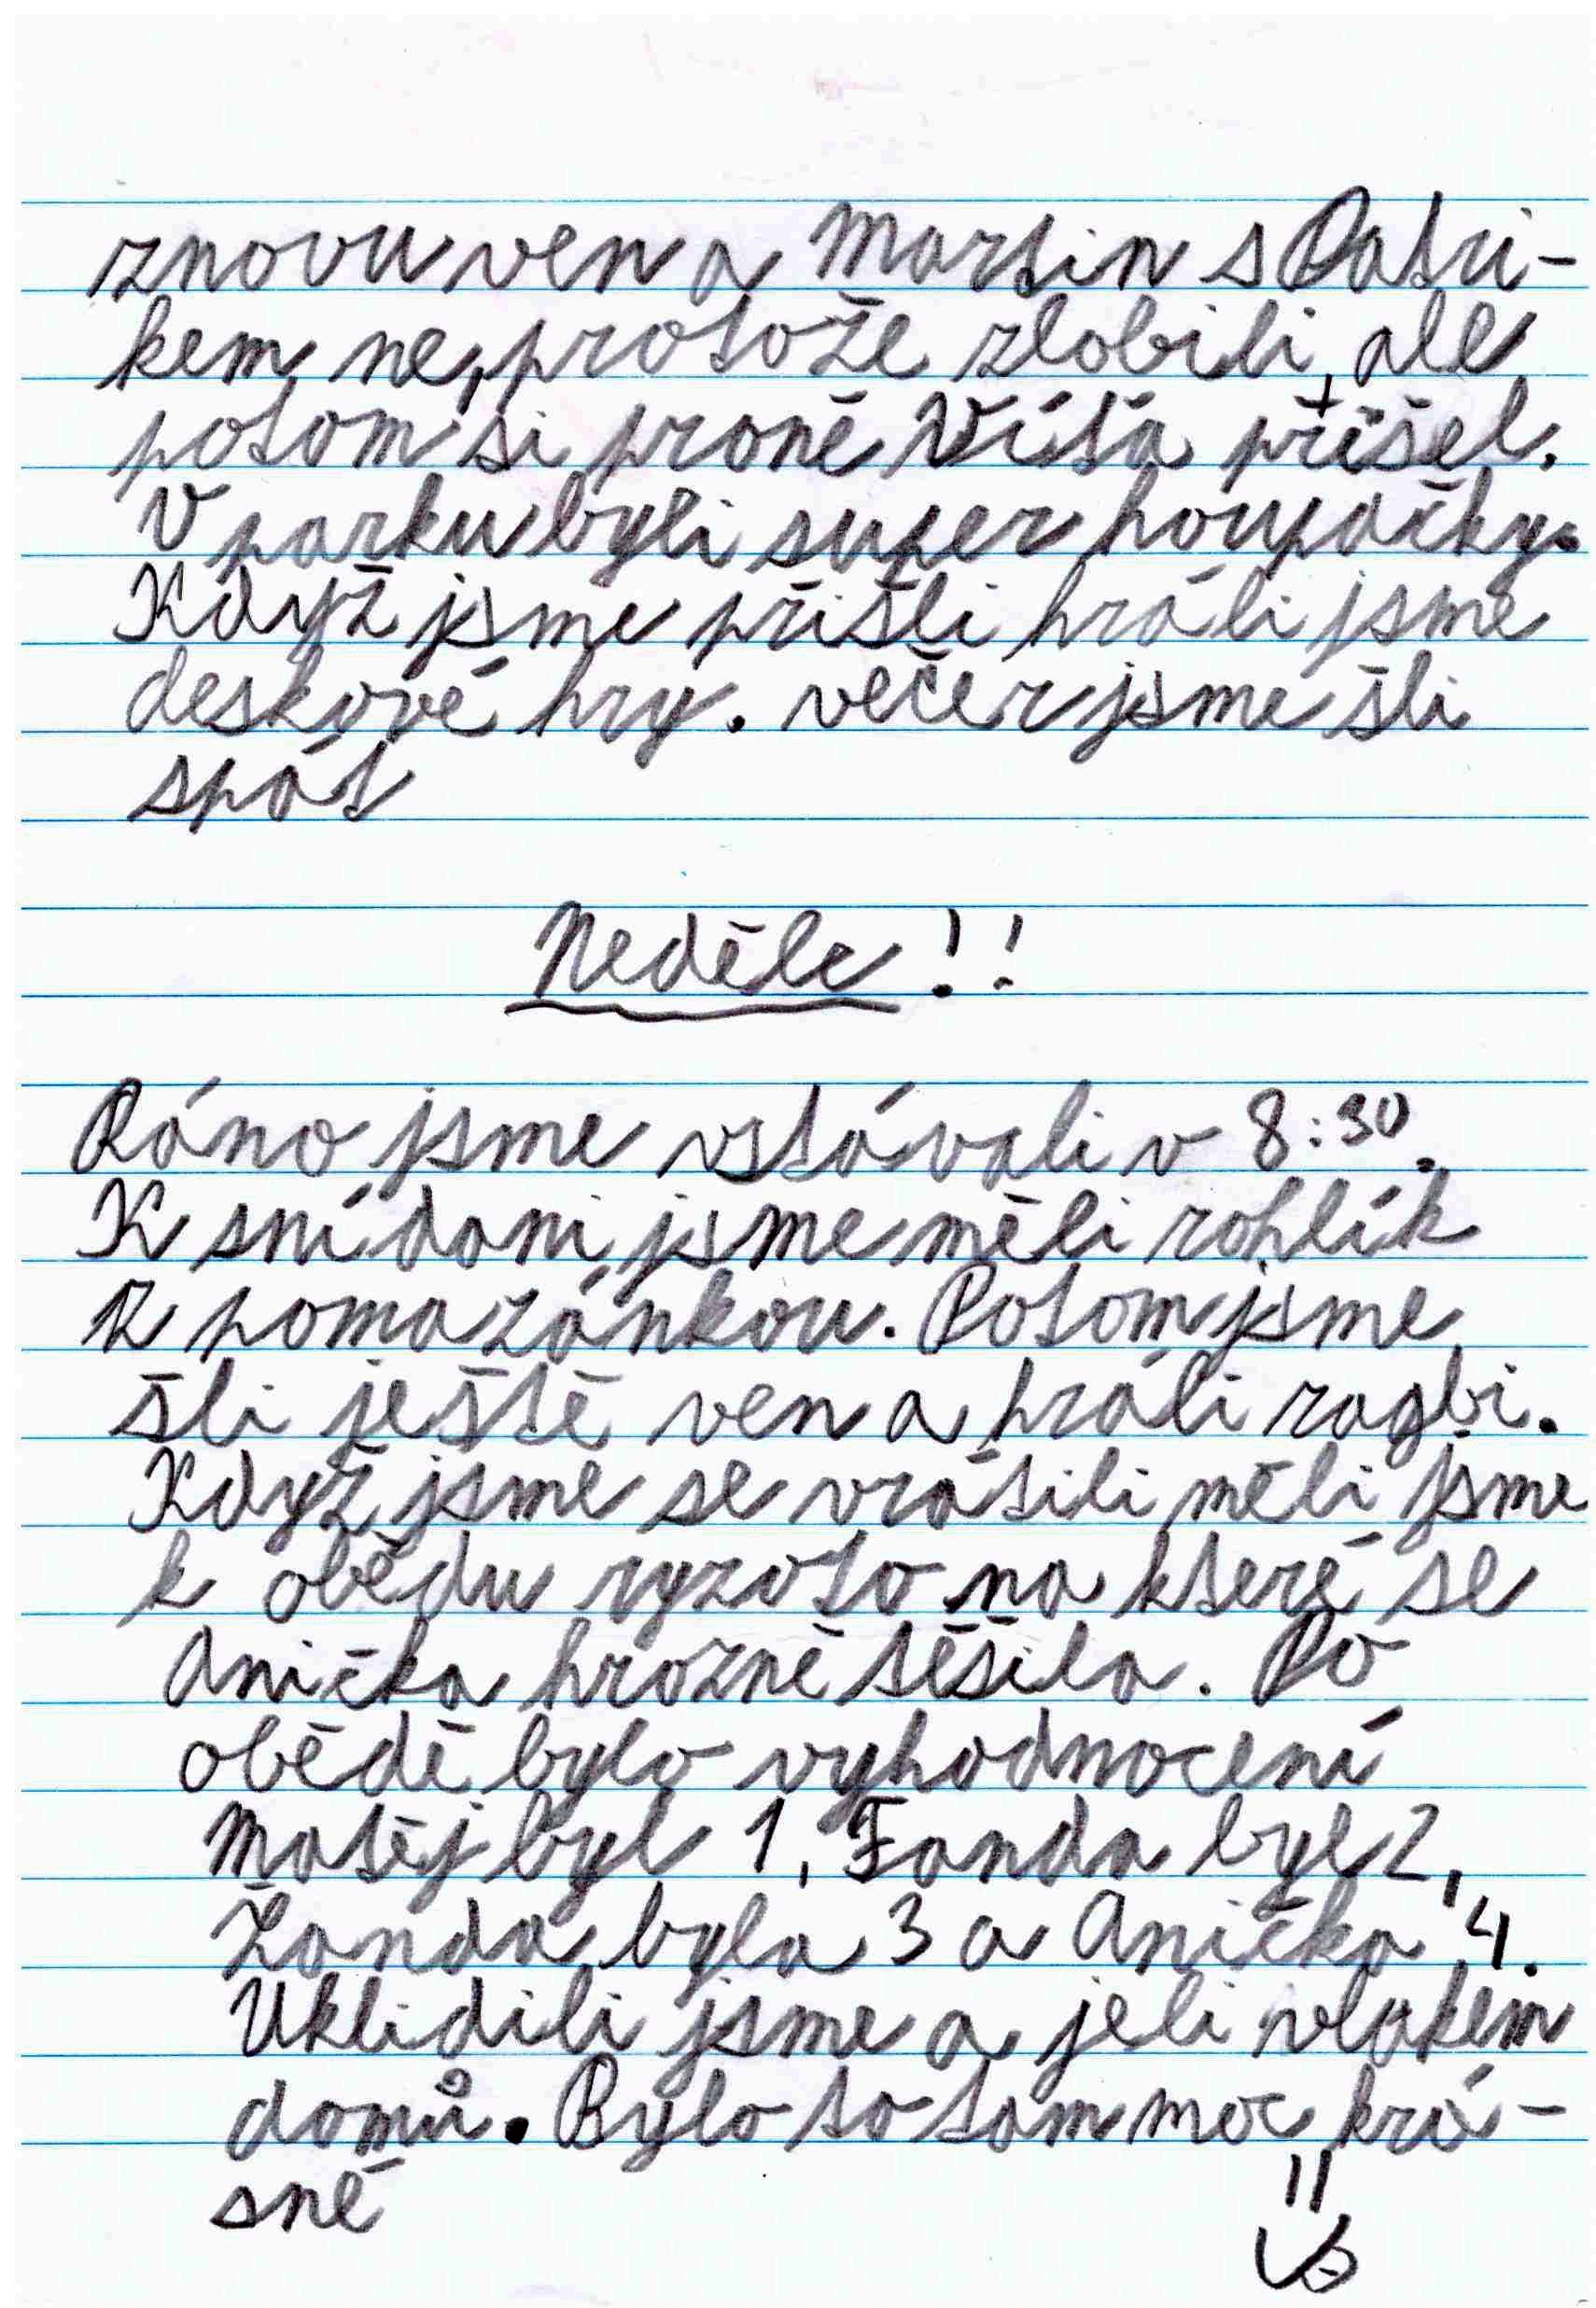 znovu ven a Martin s Patri-
kem ne, protože zlobili, ale
potom si proně Víťa přišel.
V parku byli super houpačky.
Když jsme přišli hráli jsme
deskové hry. večer jsme šli
spát
Neděle!!
Ráno jsme vstávali v 8:30.
K snídani jsme měli rohlík
z pomazánkou. Potom jsme
šli ještě ven a hráli ragbi.
Když jsme se vrátili měli jsme
k obědu ryzoto na které se
Anička hrozně těšila. Po
obědě bylo vyhodnocení
Matěj byl 1, Fanda byl 2,
Žanda byla 3 a Anička 4.
Uklidili jsme a jeli vlakem
domů. Bylo to tam moc krá-
sné